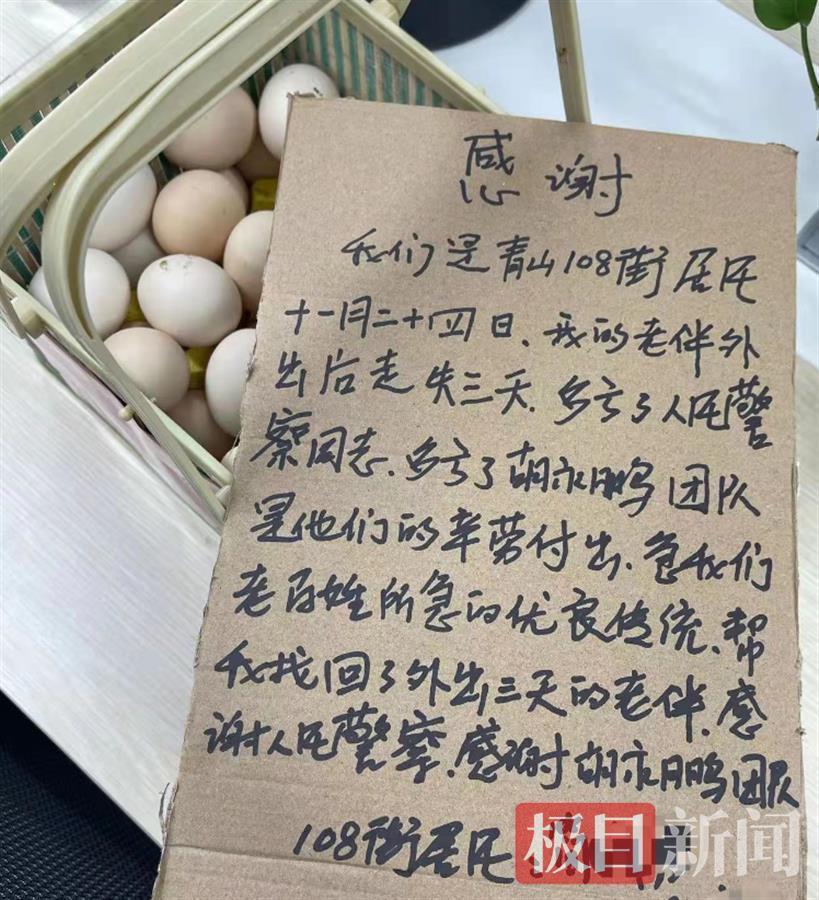 感谢
我们是青山108街居民
十一月二十四日、我的老伴外
出后走失三天.多亏了人民警
察同志、多亏了胡永鹏团队
是他们的辛劳付出、急我们
老百姓所急的优良传统、帮
我找回了外出三天的老伴、感
谢人民警察、感谢胡永鹏团队
108街居民
极目新闻